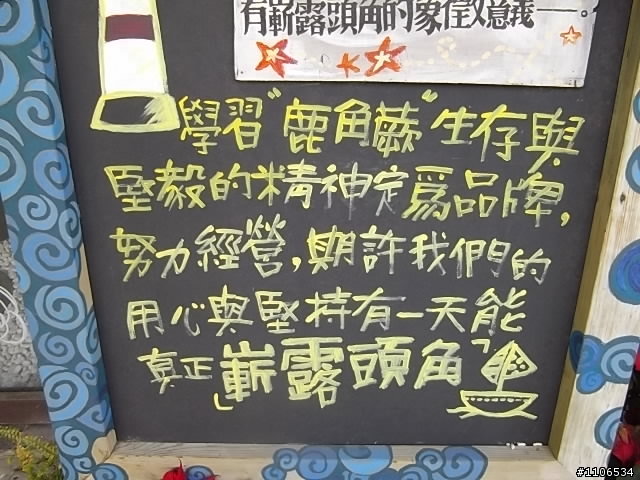 有嶄露頭角的象徵意義—。
學習"鹿角蕨"生存與
堅毅的精神定為品牌,
努力經營,期許我們的
用心與堅持有一天能
真正「嶄露頭角」
#1106534